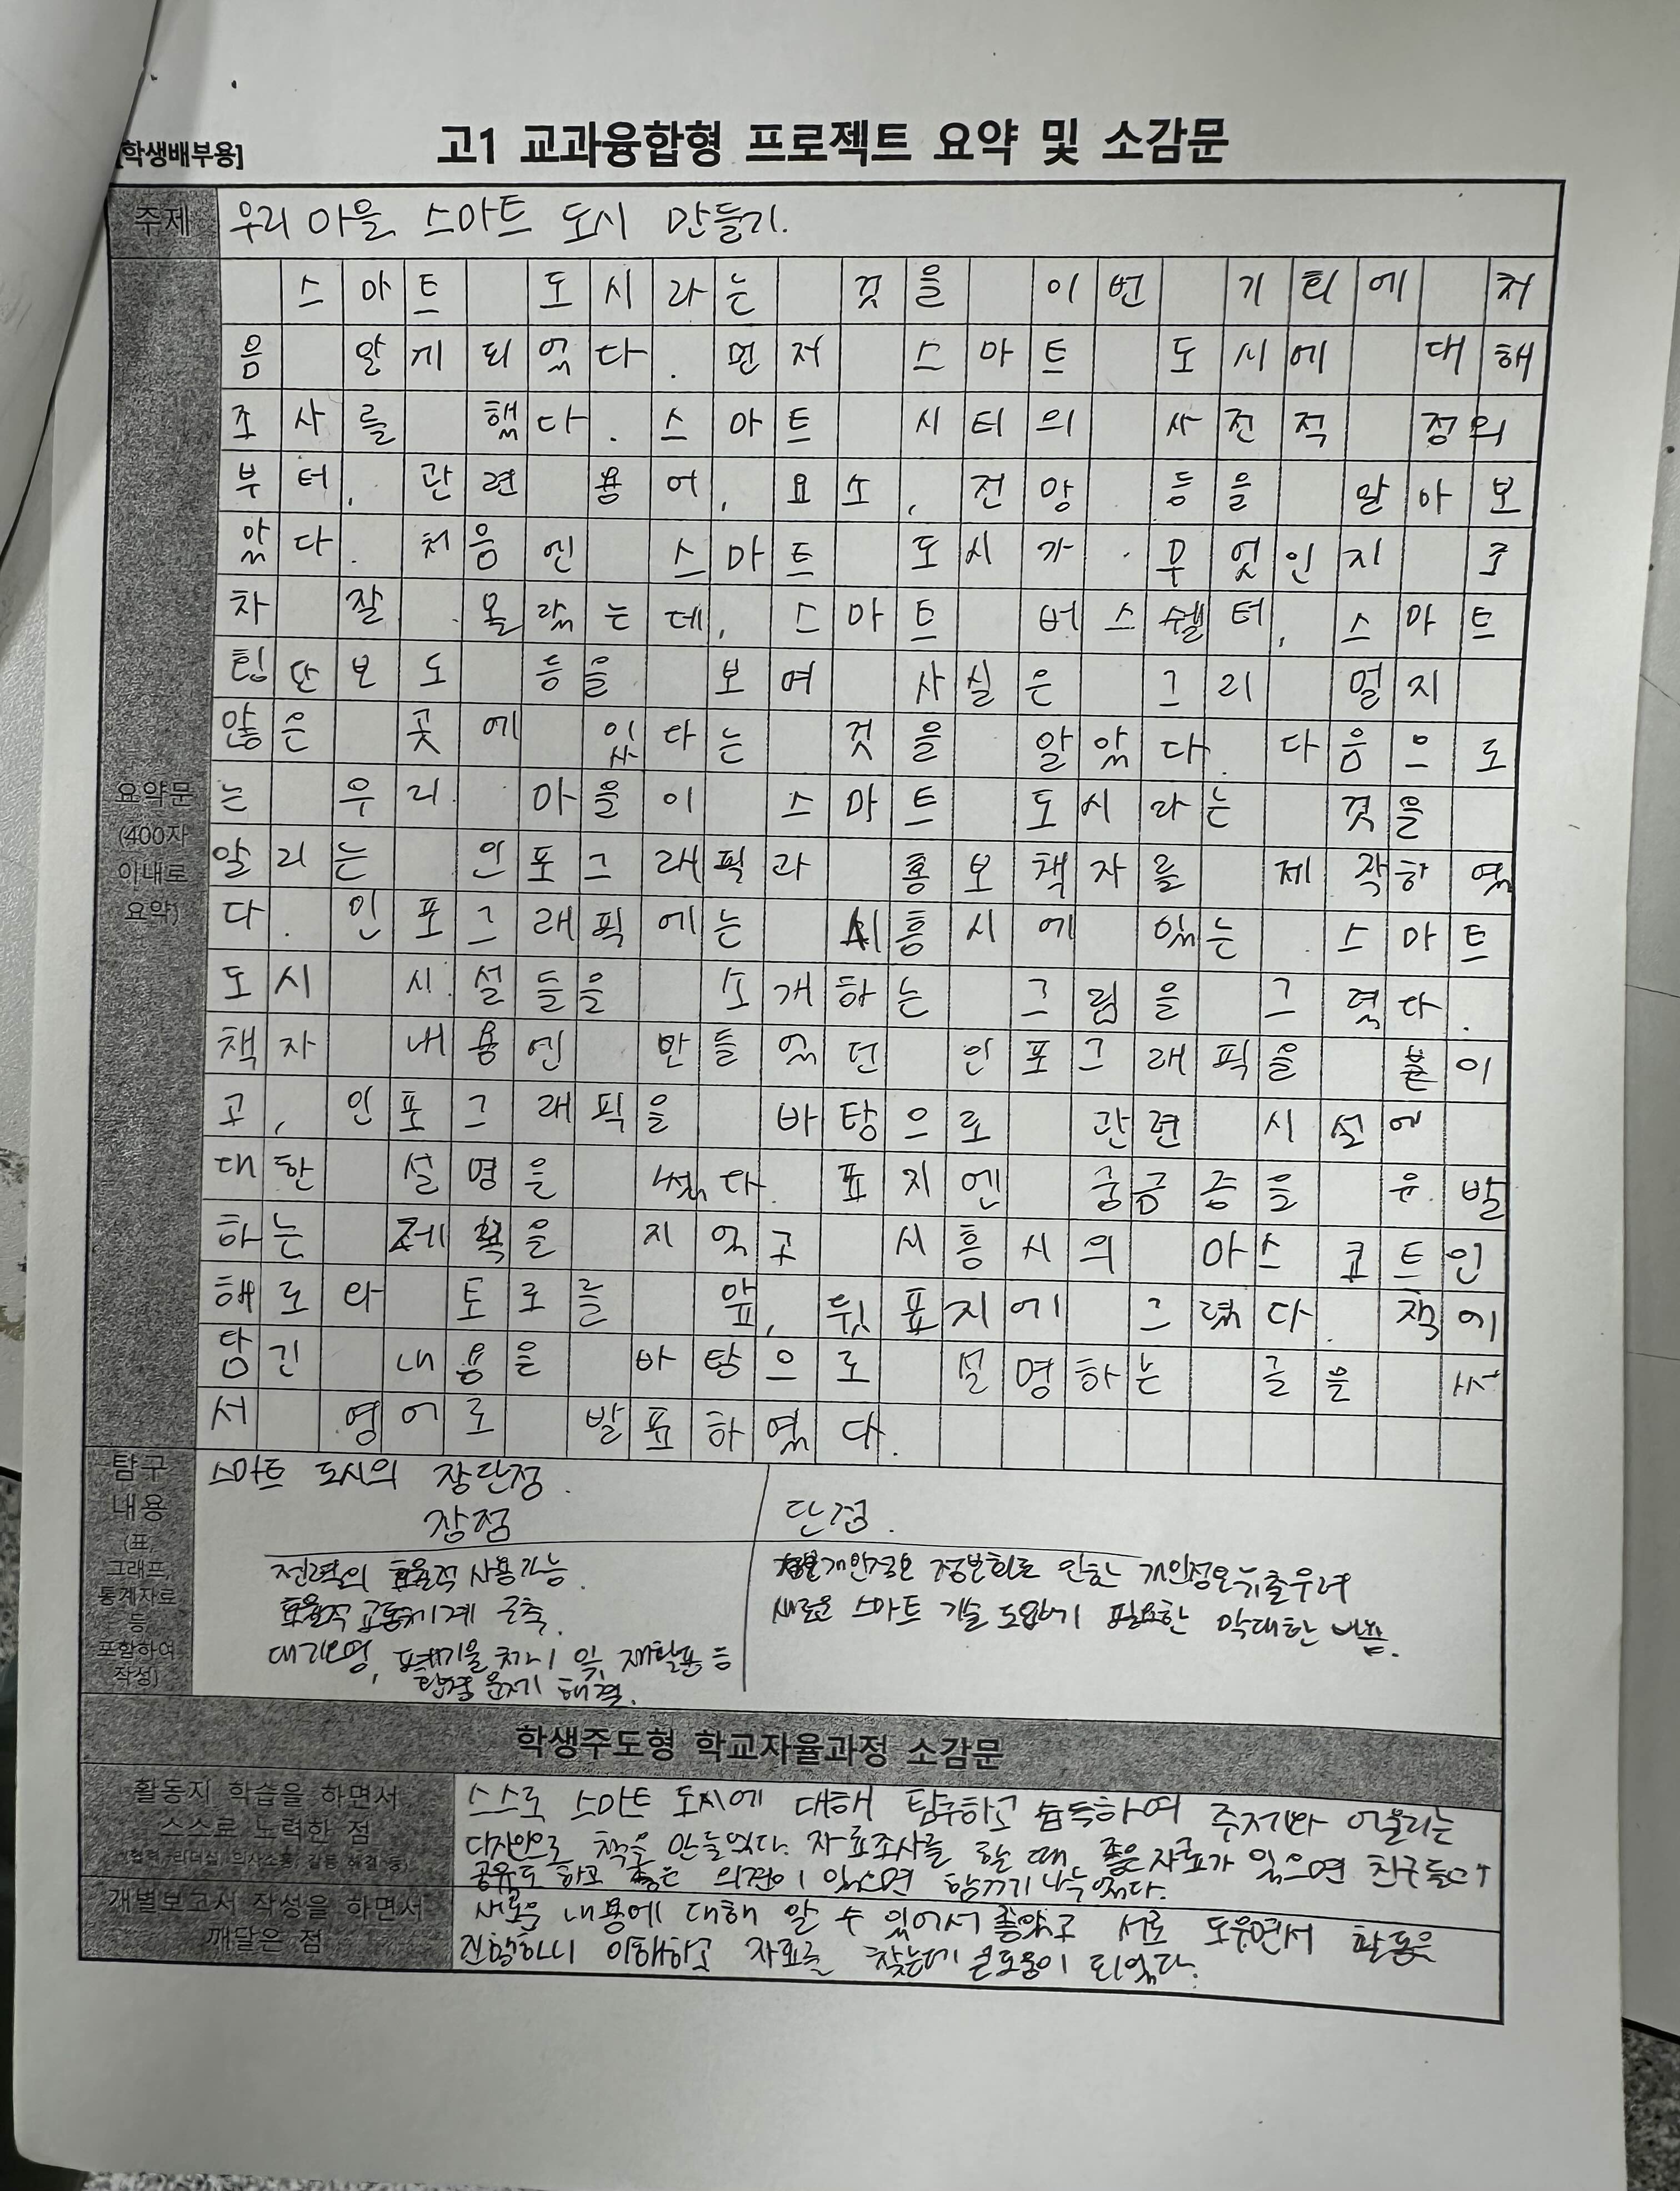 [학생배부용]
고1 교과융합형 프로젝트 요약 및 소감문
주제
우리 마을 스마트 도시 만들기.
요약문
(400자
이내로
요약)
스마트 도시라는 것을 이번 기회에 처
음 알게 되었다. 먼저 스마트 도시에 대해
조사를 했다. 스마트 시티의 사전적 정의
부터, 관련 용어, 요소, 전망 등을 알아보
았다. 처음엔 스마트 도시가 무엇인지 조
차 잘 몰랐는데, 스마트 버스쉘터, 스마트
횡단보도 등을 보여 사실은 그리 멀지
않은 곳에 있다는 것을 알았다. 다음으로
는 우리 마을이 스마트 도시라는 것을
알리는 인포그래픽과 홍보책자를 제작하였
다. 인포그래픽에는 시흥시에 있는 스마트
도시 시설들을 소개하는 그림을 그렸다.
책자 내용엔 만들었던 인포그래픽을 붙이
고, 인포그래픽을 바탕으로 관련 시설에
대한 설명을 썼다. 표지엔 궁금증을 유발
하는 제목을 지었고 시흥시의 마스코트인
해로와 토로를 앞, 뒷표지에 그렸다. 책에
담긴 내용을 바탕으로 설명하는 글을 써
서 영어로 발표하였다.
탐구
내용
(표,
그래프,
통계자료
등
포함하여
작성)
스마트 도시의 장단점.
장점
단점.
전력의 효율적 사용가능.
효율적 교통체계 구축.
대기오염, 폐기물 처리 및 재활용 등
환경문제 해결.
정보화로 인한 개인정보유출우려
새로운 스마트 기술 도입하기 필요한 막대한 비용.
학생주도형 학교자율과정 소감문
활동지 학습을 하면서
스스로 노력한 점
(협력, 리더십, 의사소통, 갈등 해결 등)
스스로 스마트 도시에 대해 탐구하고 습득하여 주제와 어울리는
디자인으로 책을 만들었다. 자료조사를 할 때 좋은 자료가 있으면 친구들과
공유도 하고 좋은 의견이 있으면 함께 나누었다.
개별보고서 작성을 하면서
깨달은 점
새로운 내용에 대해 알 수 있어서 좋았고 서로 도우면서 활동을
진행하니 이해하고 자료를 찾는데 큰도움이 되었다.